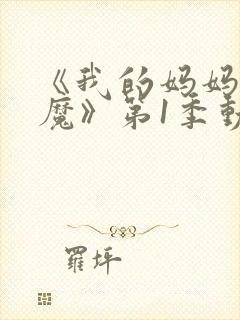 《我的妈妈
魔》第1季動
羅坪